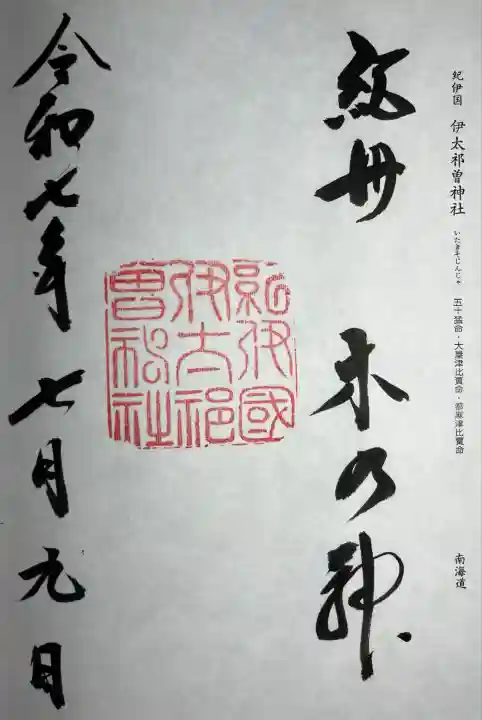 紀伊国 伊太祁曽神社 いたきそじんじゃ 五十猛命・大屋津比賣命・都麻津比賣命 南海道
紀州 木の神
紀伊國
伊太祁
曽神社
令和七年 七月九日